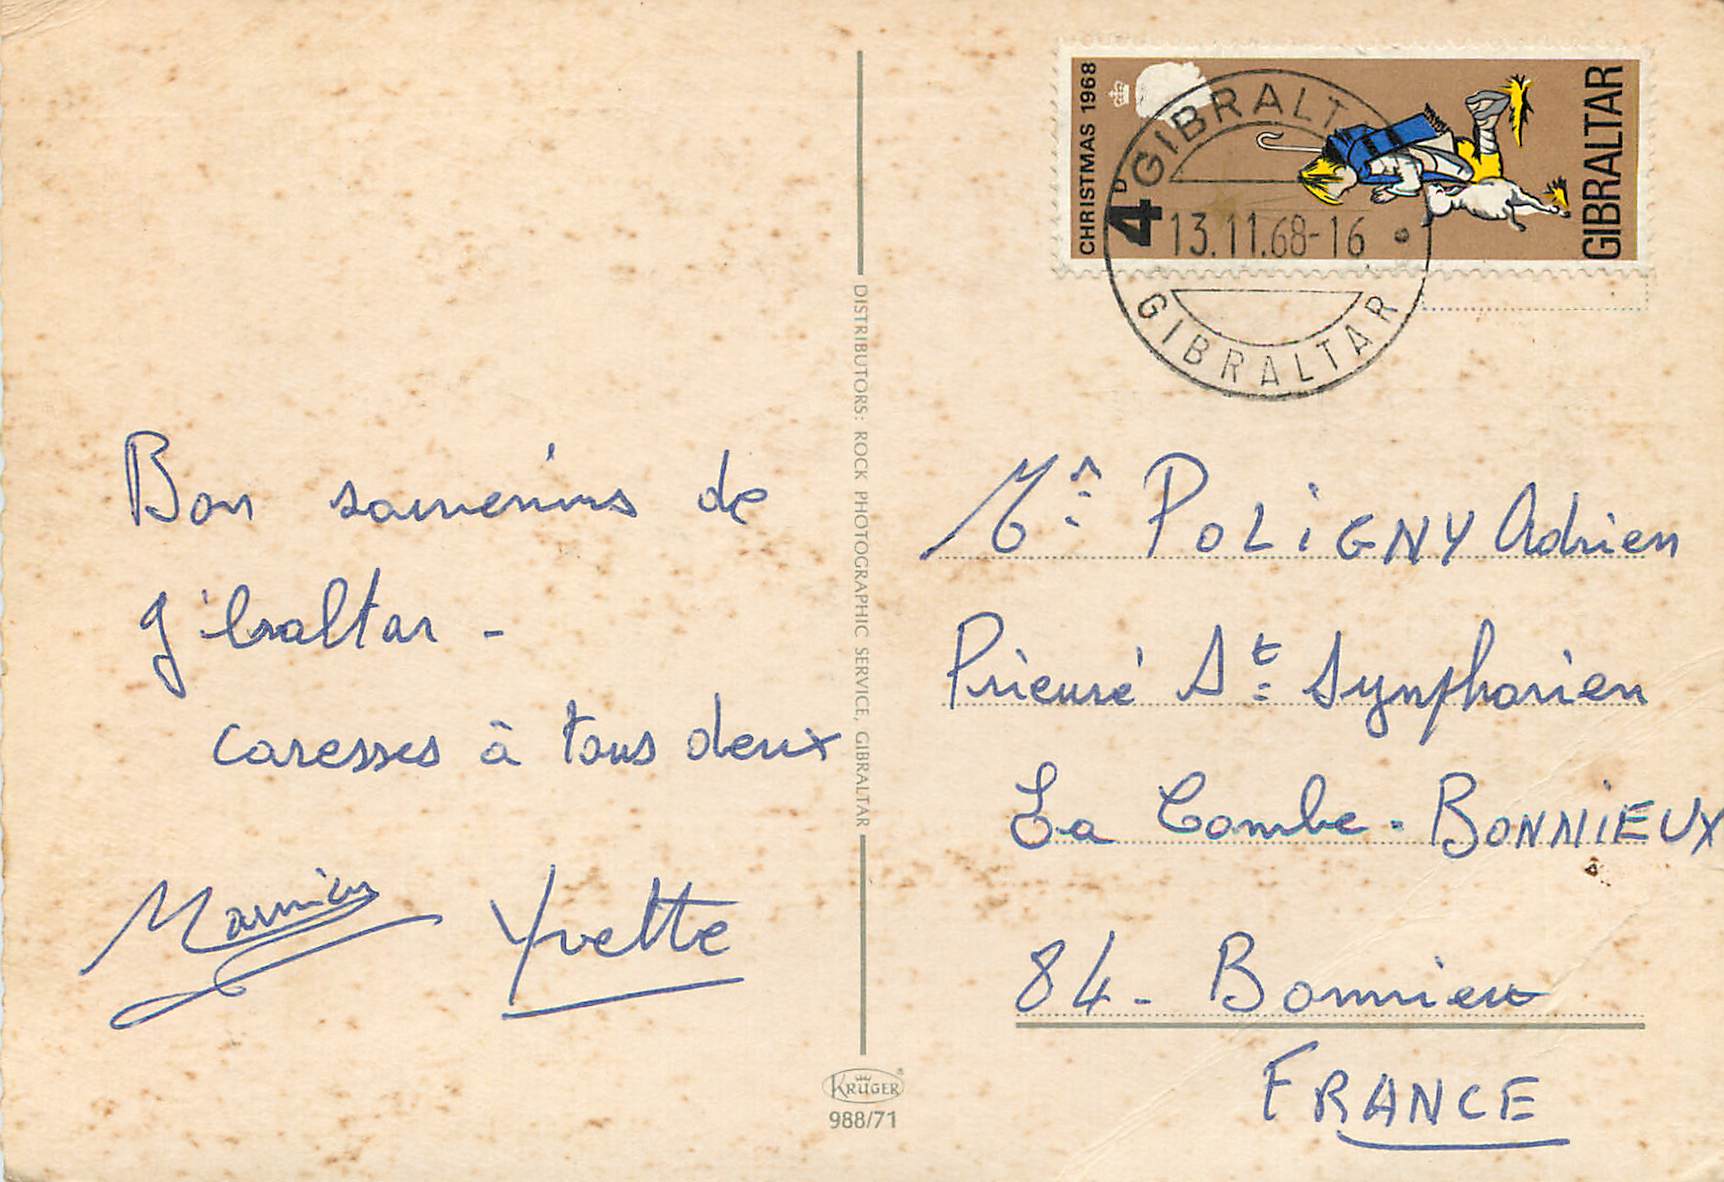 Bon souvenirs de
gibraltar -
caresses à tous deux
Yvette
DISTRIBUTORS: ROCK PHOTOGRAPHIC SERVICE, GIBRALTAR
KRÜGER®
988/71
CHRISTMAS 1968
4D
GIBRALTAR
GIBRALTAR
13.11.68-16
GIBRALTAR
Mr POLIGNY Adrien
Prieuré St Symphorien
La Combe - BONNIEUX
84 - Bonnieux
FRANCE